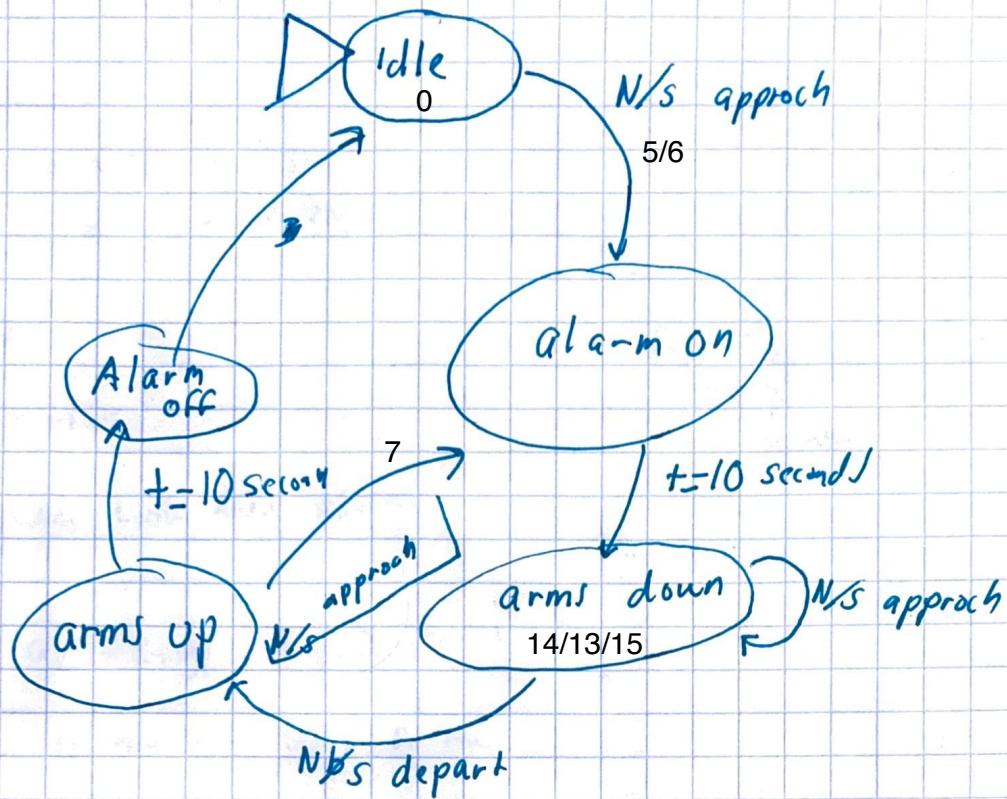 Idle
0
N/s approch
5/6
alarm on
Alarm
off
7
t=10 second
t=10 seconds
approch
N/s
arms down
14/13/15
N/s approch
arms up
s depart